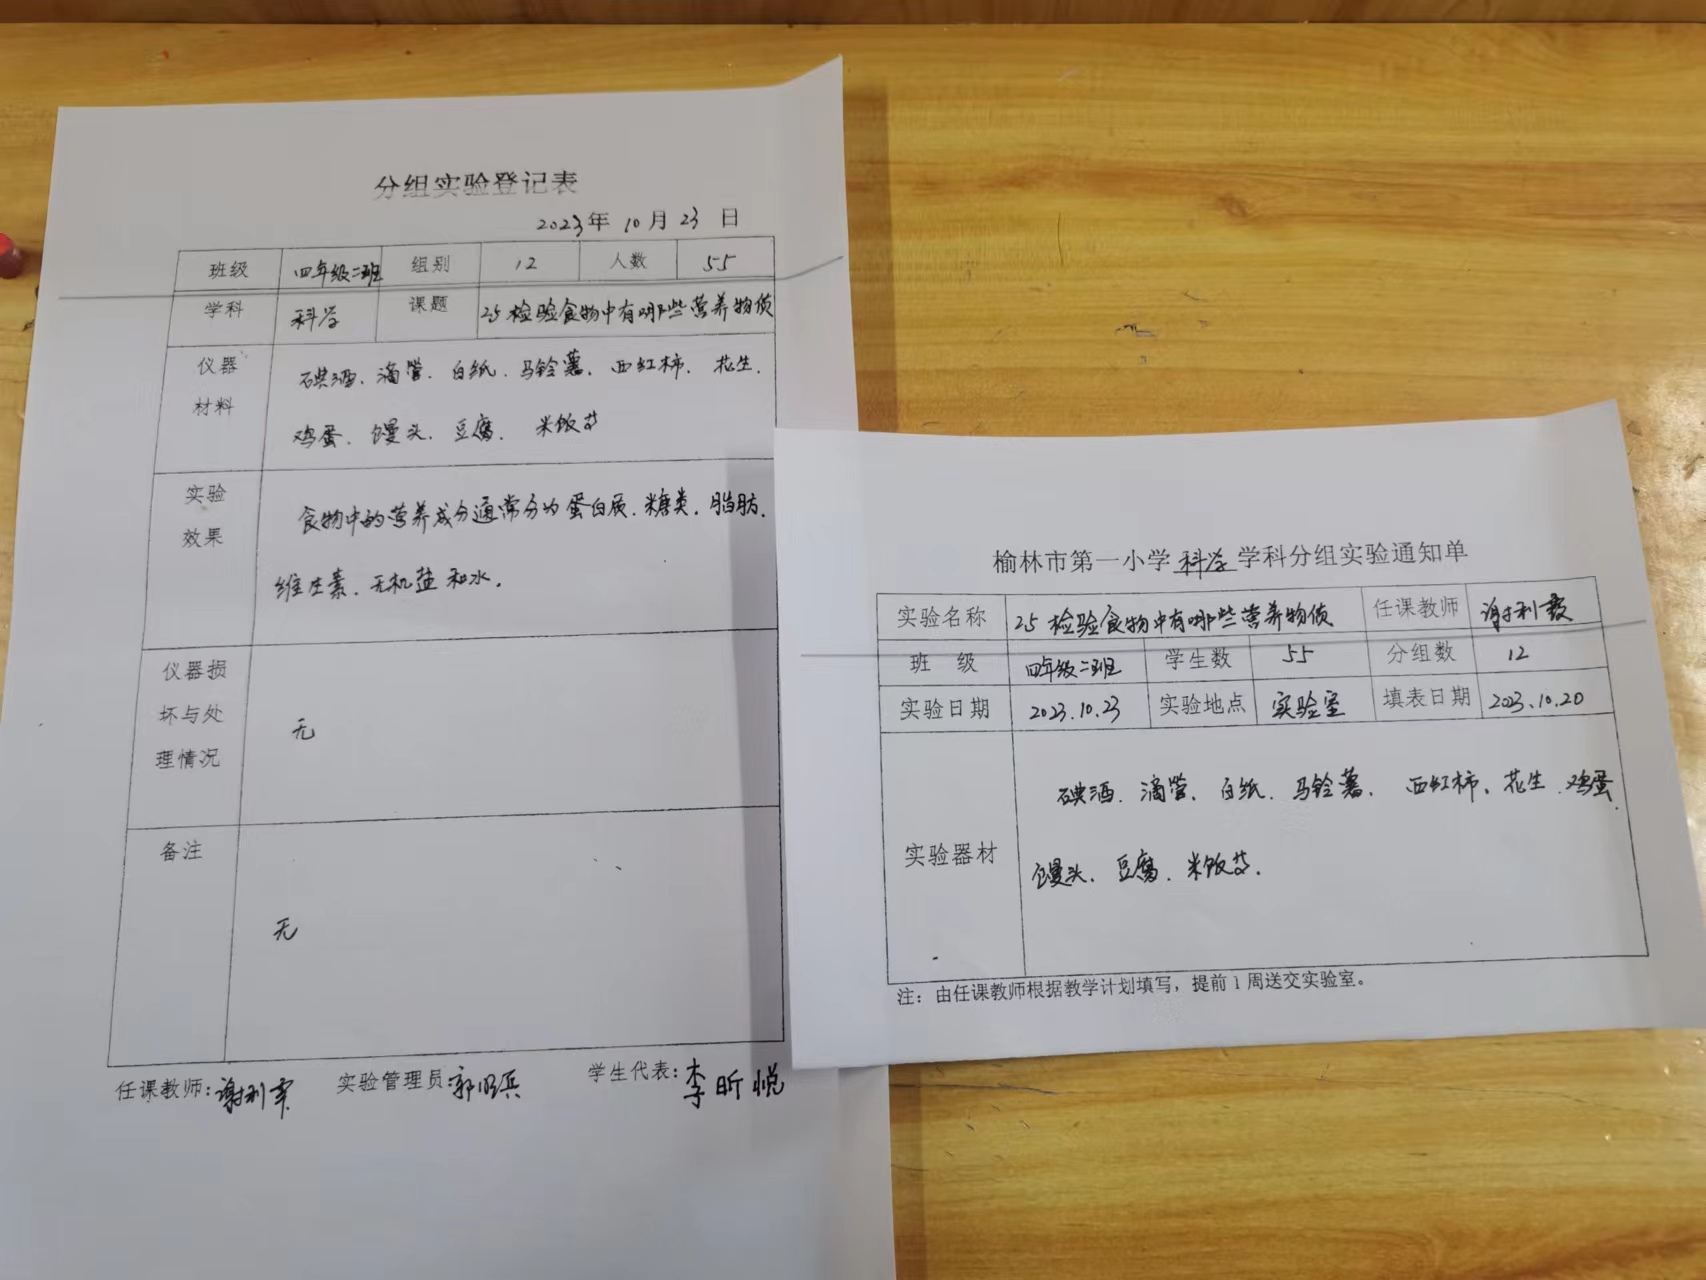 分组实验登记表
2023年 10月 23 日
班级 四年级二班 组别 12 人数 55
学科 科学 课题 25 检验食物中有哪些营养物质
仪器 碘酒、滴管、白纸、马铃薯、西红柿、花生、
材料 鸡蛋、馒头、豆腐、米饭等
实验 食物中的营养成分通常分为蛋白质、糖类、脂肪、
效果 维生素、无机盐和水。
仪器损
坏与处 无
理情况
备注
无
任课教师: 谢利 实验管理员: 学生代表: 李昕悦
榆林市第一小学 科学 学科分组实验通知单
实验名称 25 检验食物中有哪些营养物质 任课教师 谢利
班 级 四年级二班 学生数 55 分组数 12
实验日期 2023.10.23 实验地点 实验室 填表日期 2023.10.20
碘酒、滴管、白纸、马铃薯、西红柿、花生、鸡蛋、
实验器材
馒头、豆腐、米饭等.
注：由任课教师根据教学计划填写，提前1周送交实验室。